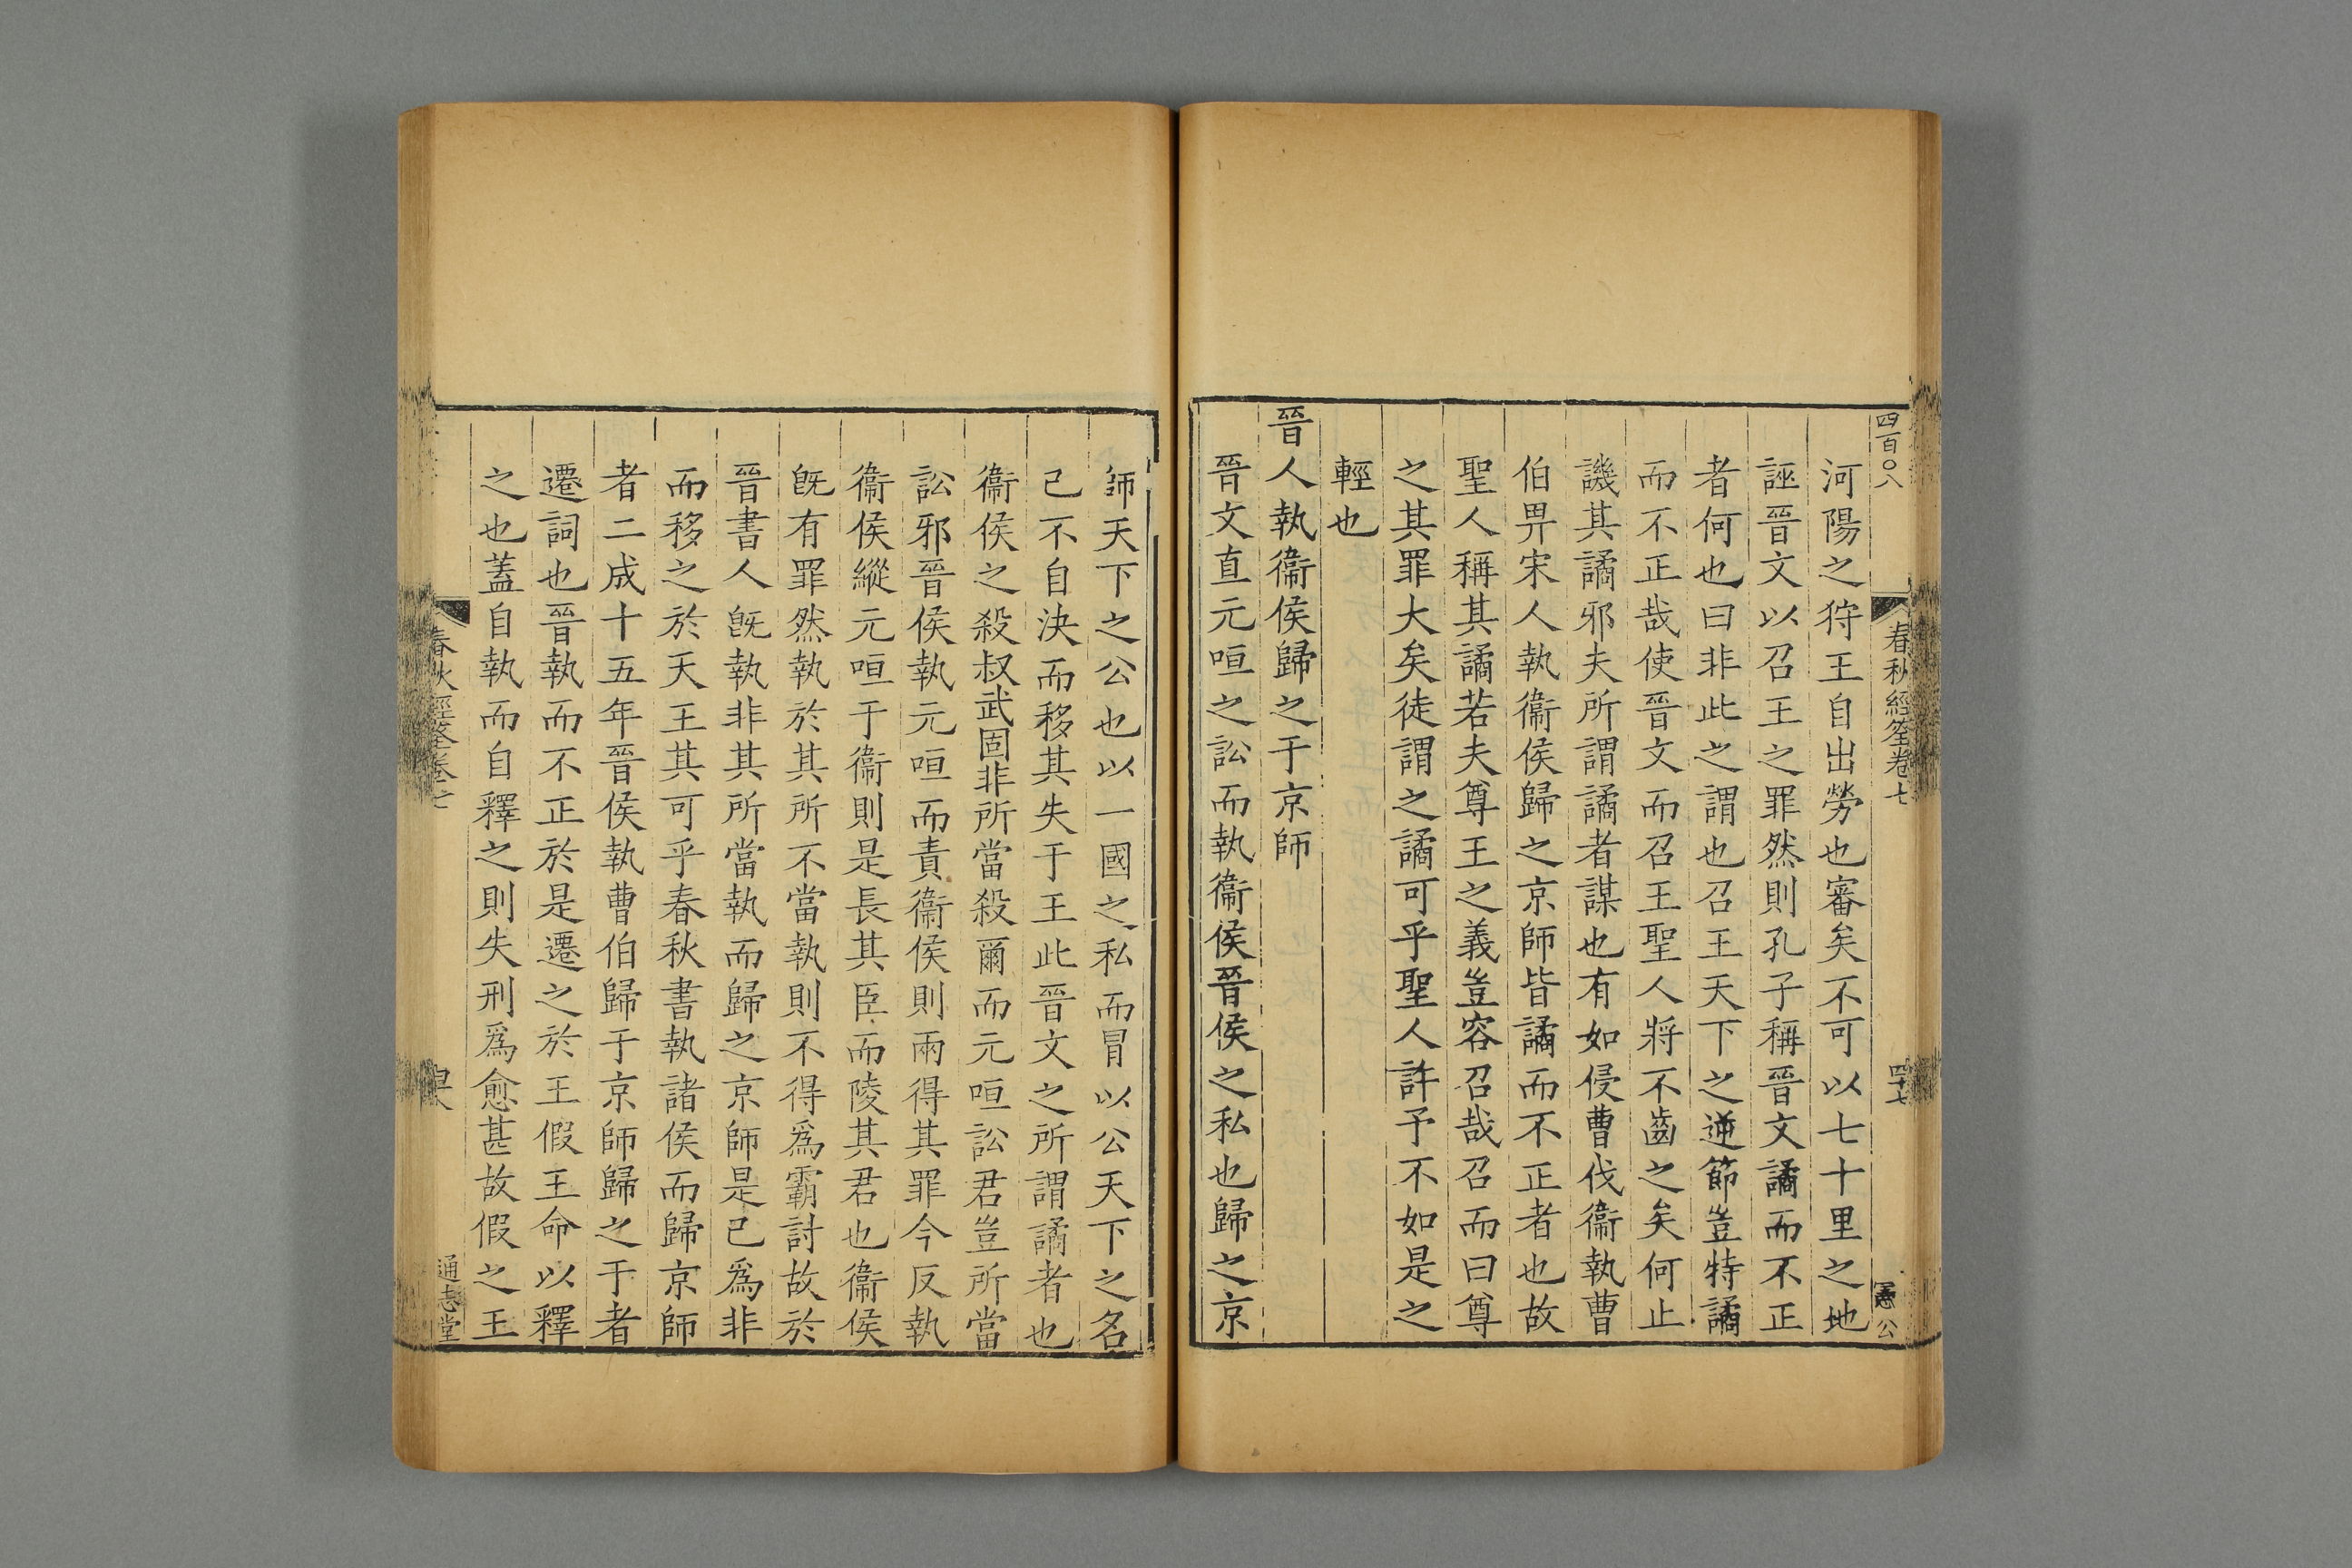 四百〇八
春秋經筌卷七
四十七
公
河陽之狩王自出勞也審矣不可以七十里之地
誣晉文以召王之罪然則孔子稱晉文譎而不正
者何也曰非此之謂也召王天下之逆節豈特譎
而不正哉使晉文而召王聖人將不齒之矣何止
譏其譎邪夫所謂譎者謀也有如侵曹伐衞執曹
伯畀宋人執衞侯歸之京師皆譎而不正者也故
聖人稱其譎若夫尊王之義豈容召哉召而曰尊
之其罪大矣徒謂之譎可乎聖人許予不如是之
輕也
晉人執衞侯歸之于京師
晉文直元咺之訟而執衞侯晉侯之私也歸之京
師天下之公也以一國之私而冒以公天下之名
己不自決而移其失于王此晉文之所謂譎者也
衞侯之殺叔武固非所當殺爾而元咺訟君豈所當
訟邪晉侯執元咺而責衞侯則兩得其罪今反執
衞侯縱元咺于衞則是長其臣而陵其君也衞侯
旣有罪然執於其所不當執則不得爲霸討故於
晉書人旣執非其所當執而歸之京師是已爲非
而移之於天王其可乎春秋書執諸侯而歸京師
者二成十五年晉侯執曹伯歸于京師歸之于者
遷詞也晉執而不正於是遷之於王假王命以釋
之也蓋自執而自釋之則失刑爲愈甚故假之王
春秋經筌卷七
通志堂